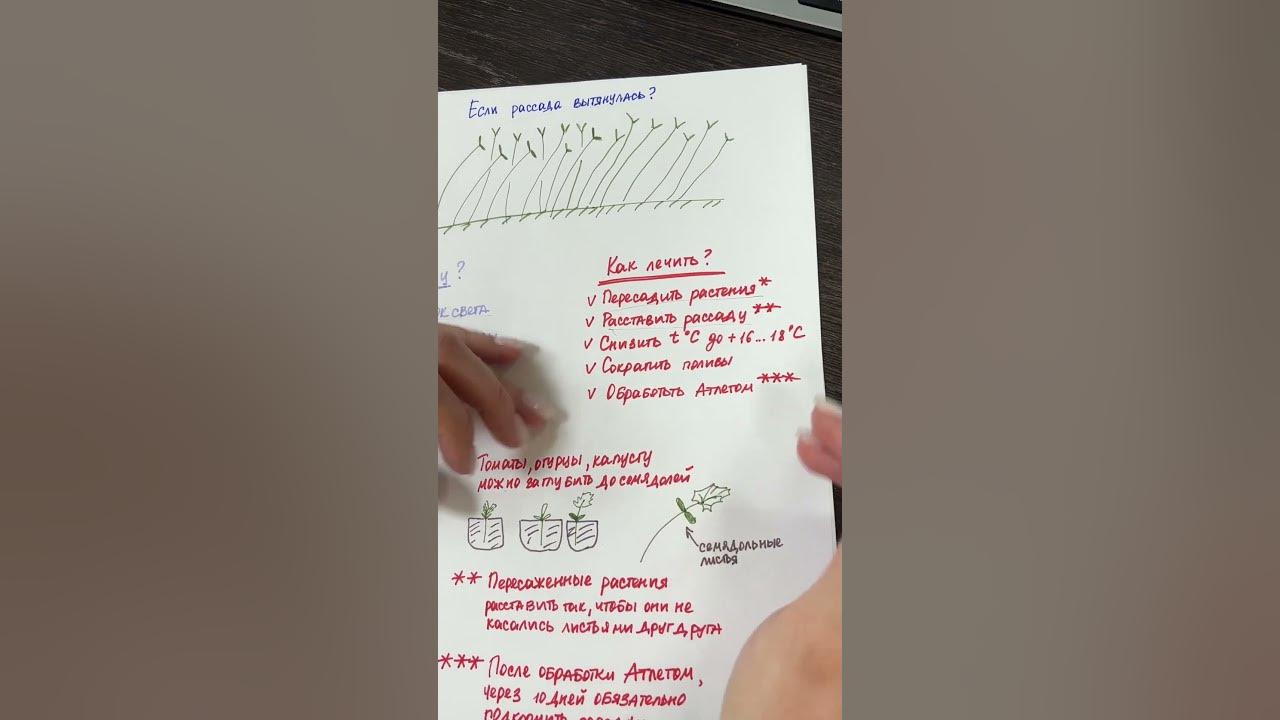 Если рассада вытянулась?
у?
ок света
Как лечить?
v Пересадить растения*
v Расставить рассаду **
v Снизить t°C до +16...18°C
v Сократить поливы
v Обработать Атлетом ***
Томаты, огурцы, капусту
можно заглубить до семядолей
семядольные
листья
** Пересаженные растения
расставить так, чтобы они не
касались листьями друг друга
*** После обработки Атлетом,
через 10 дней обязательно
подкормить